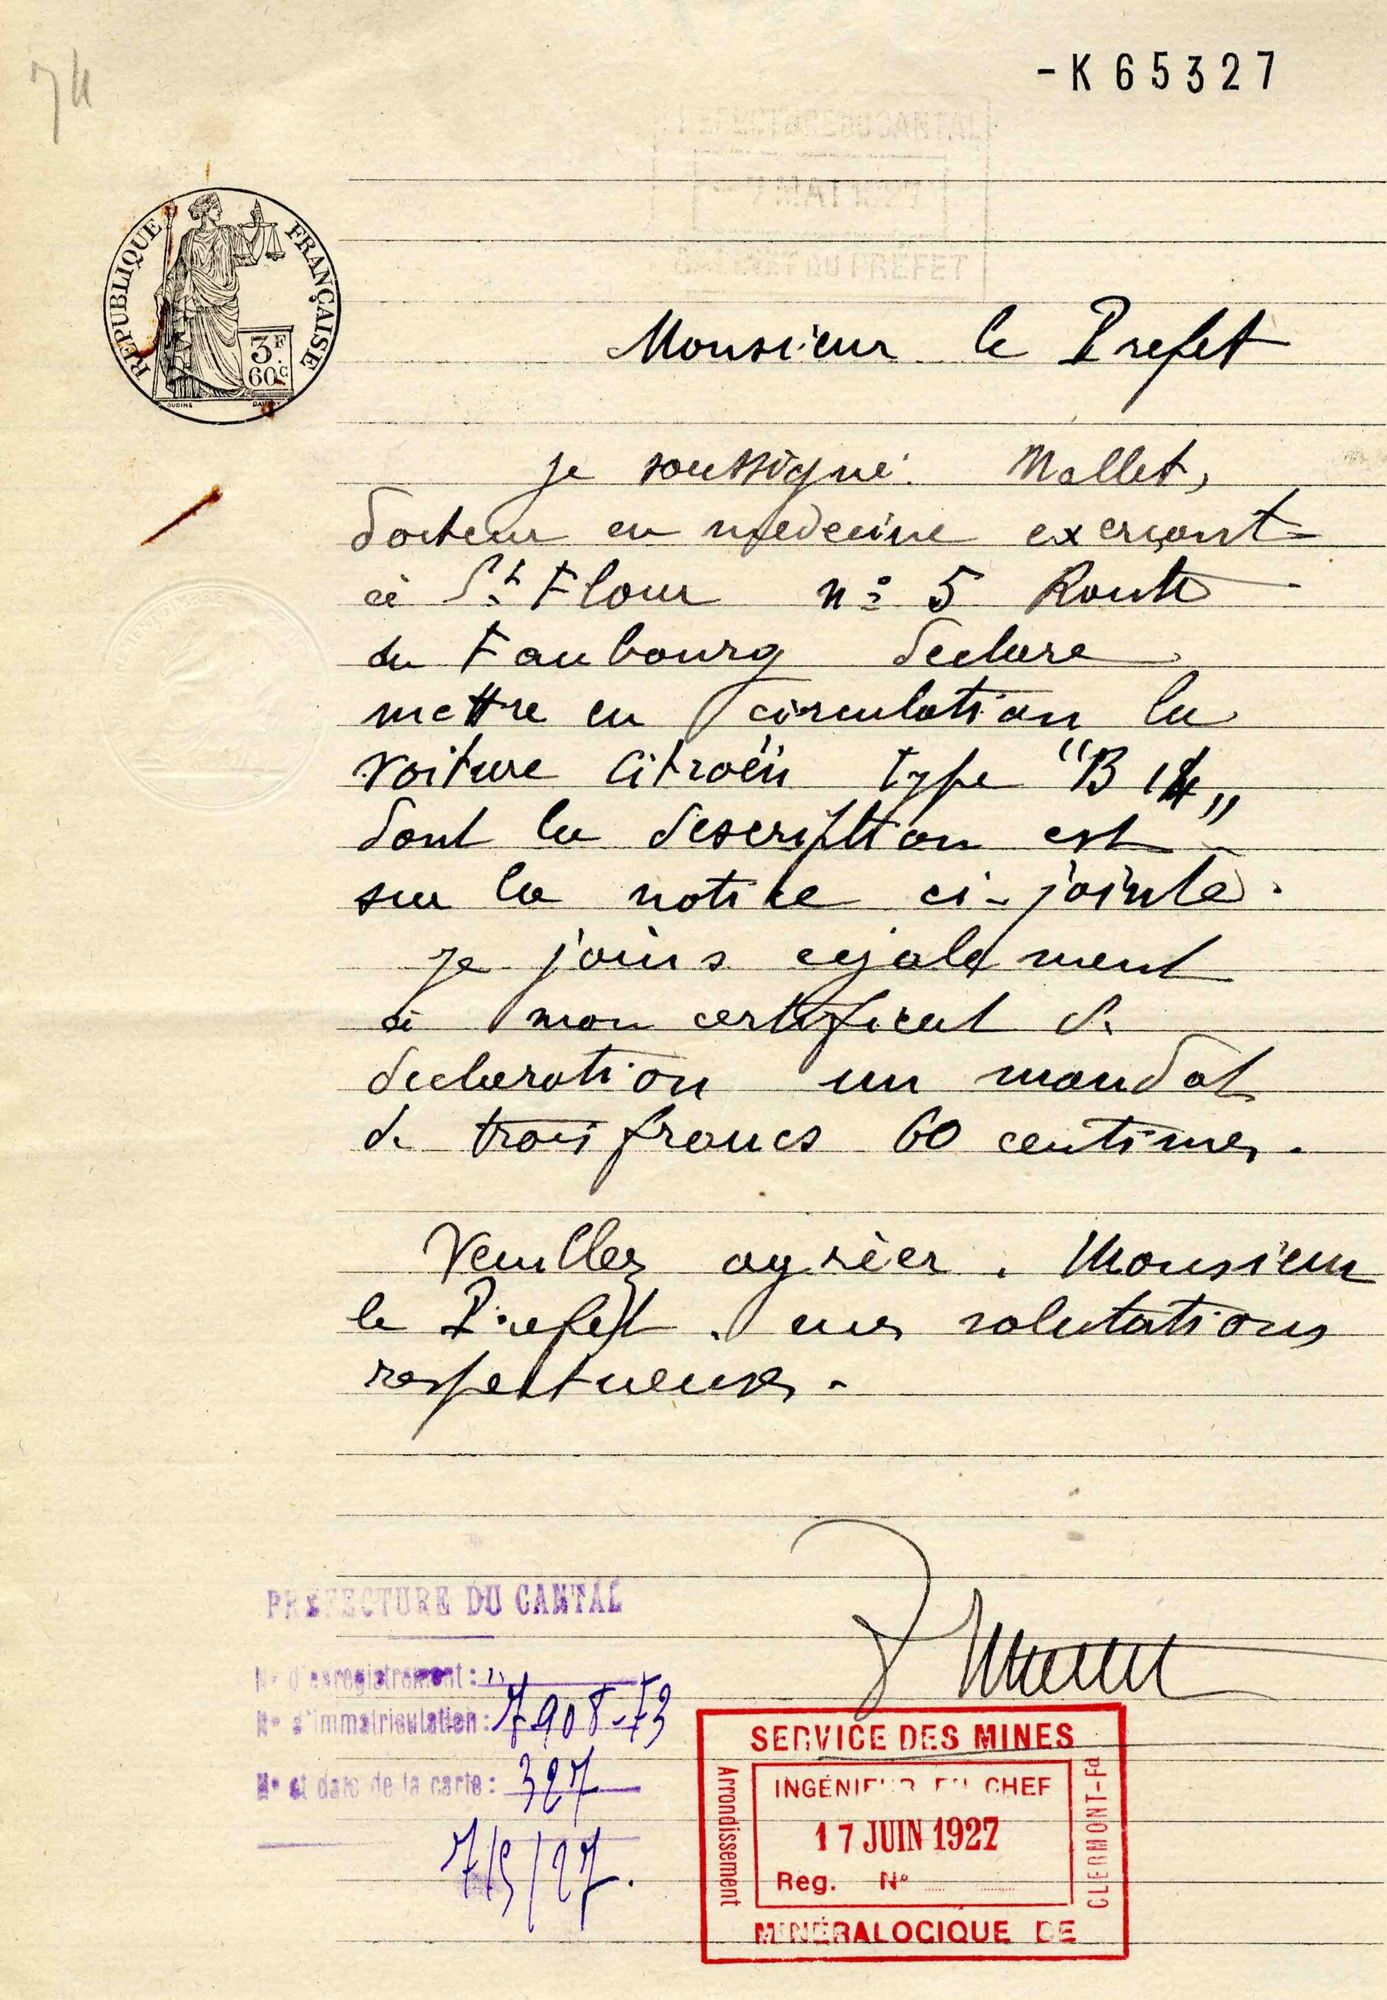 -K65327
74
PREFECTURE DU CANTAL
7 MAI 1927
DU PREFET
REPUBLIQUE FRANÇAISE
3F
60c
OUDINE
Monsieur le Prefet
je soussigné Mallet,
docteur en medecine exerçant
à St Flour n° 5 Route
du Faubourg declare
mettre en circulation la
voiture Citroën type "B 14"
dont la description est
sur la notice ci-jointe.
Je joins egalement
à mon certificat de
declaration un mandat
de trois francs 60 centimes.
Veuillez agréer, Monsieur
le Prefet, mes salutations
respectueuses.
Mallet
PREFECTURE DU CANTAL
N° d'enregistrement :
N° d'immatriculation : 7908-F3
N° et date de la carte : 327
7/5/27.
SERVICE DES MINES
Arrondissement
INGÉNIEUR EN CHEF
17 JUIN 1927
Reg. N°
CLERMONT-Fd
MINÉRALOGIQUE DE